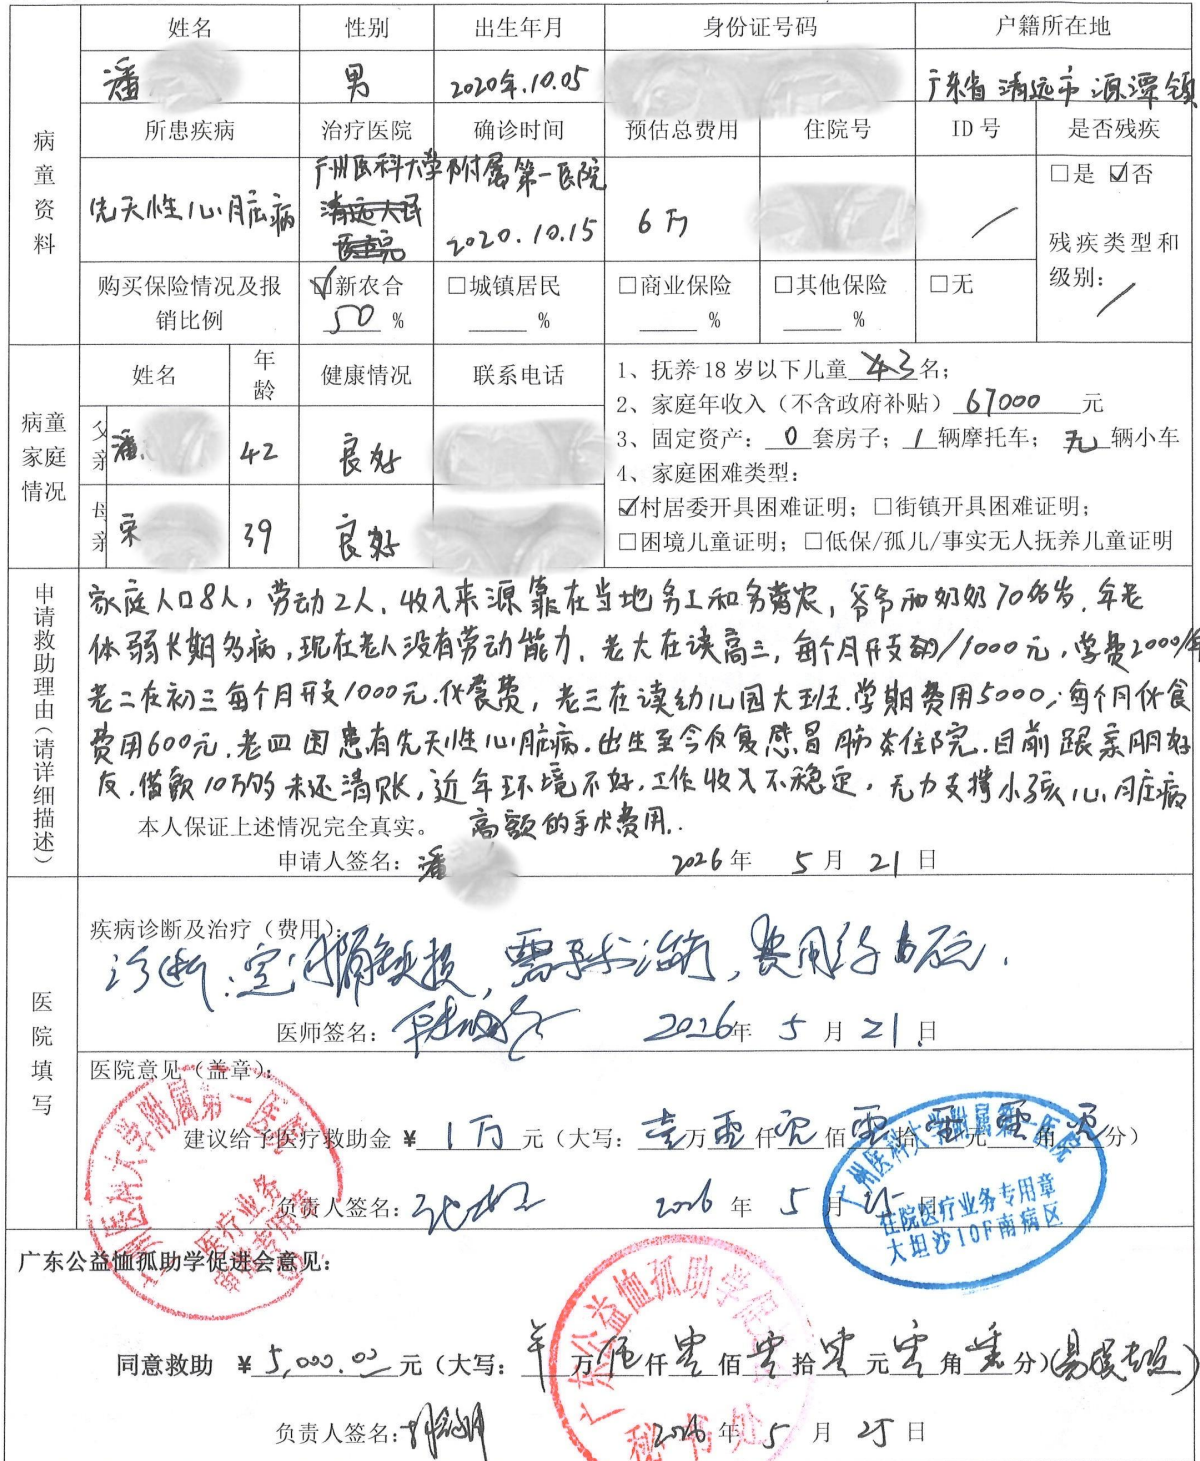 姓名 性别 出生年月 身份证号码 户籍所在地
潘 男 2020年.10.05 广东省清远市源潭镇
病童资料
所患疾病 治疗医院 确诊时间 预估总费用 住院号 ID 号 是否残疾
先天性心脏病 广州医科大学附属第一医院 2020.10.15 6万 / □是 ☑否
清远人民
医院
残疾类型和
级别：
/
购买保险情况及报
销比例
☑新农合 □城镇居民 □商业保险 □其他保险 □无
50 % ____ % ____ % ____ %
病童家庭情况
姓名 年龄 健康情况 联系电话
父亲 潘 42 良好
母亲 宋 39 良好
1、抚养 18 岁以下儿童 3名；
2、家庭年收入（不含政府补贴） 67000 元
3、固定资产： 0 套房子； 1 辆摩托车； 无 辆小车
4、家庭困难类型：
☑村居委开具困难证明；□街镇开具困难证明；
□困境儿童证明；□低保/孤儿/事实无人抚养儿童证明
申请救助理由（请详细描述）
家庭人口8人，劳动2人，收入来源靠在当地务工和务农，爷爷和奶奶70多岁，年老
体弱长期多病，现在老人没有劳动能力，老大在读高三，每个月开支1000元，学费2000/年
老二在初三每个月开支1000元.伙食费，老三在读幼儿园大班.学期费用5000，每个月伙食
费用600元.老四因患有先天性心脏病.出生至今反复感冒肺炎住院.目前跟亲朋好
友.借款10万的未还清账，近年环境不好.工作收入不稳定，无力支撑小孩心脏病
高额的手术费用.
本人保证上述情况完全真实。
申请人签名：潘 2026年 5 月 21 日
医院填写
疾病诊断及治疗（费用）：
诊断：室间隔缺损，需手术治疗，费用约6万元.
医师签名： 2026年 5 月 21 日
医院意见（盖章）：
建议给予医疗救助金 ¥ 1万 元（大写： 壹万零仟零佰零拾零元零角零分）
负责人签名： 2026 年 5 月 21 日
广州医科大学附属第一医院
医疗业务
广州医科大学附属第一医院
住院医疗业务专用章
大坦沙10F南病区
广东公益恤孤助学促进会意见：
同意救助 ¥ 5,000.00 元（大写： 万 伍仟零佰零拾零元零角零分）
负责人签名： 2026 年 5 月 25 日
广东公益恤孤助学促进会
秘书处